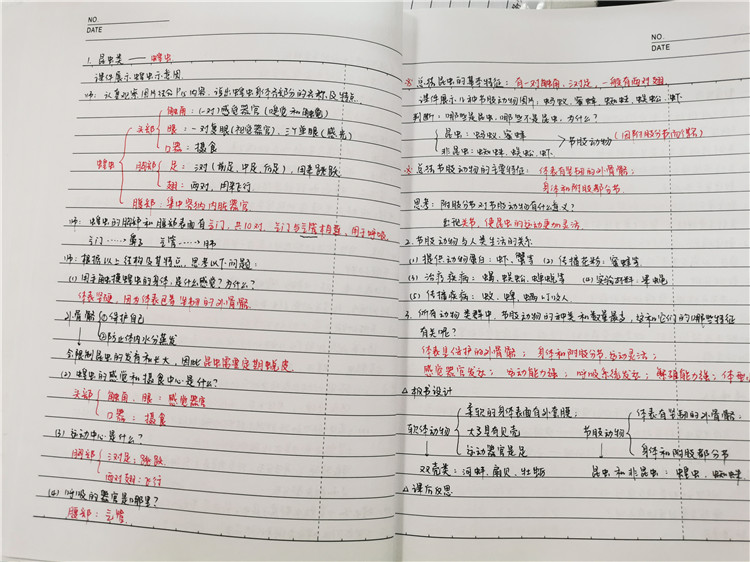 NO.
DATE
1. 昆虫类 —— 蝗虫
课件展示蝗虫示意图.
师: 认真观察图片结合P15内容, 说出蝗虫身体各部分的名称及特点.
触角: (一对)感觉器官 (嗅觉和触觉)
头部 眼: 一对复眼(视觉器官), 三个单眼(感光)
口器: 摄食
蝗虫 胸部 足: 三对 (前足, 中足, 后足), 用来跳跃
翅: 两对, 用来飞行
腹部: 集中容纳内脏器官
师: 蝗虫的胸部和腹部表面有气门, 共10对, 气门与气管相连, 用于呼吸.
气门 ……→ 鼻子 气管 ……→ 肺
师: 根据以上结构及其特点, 思考以下问题:
(1) 用手触摸蝗虫的身体, 是什么感觉? 为什么?
体表坚硬, 因为体表包着坚韧的外骨骼
外骨骼 ①保护自己
②防止体内水分蒸发
会限制昆虫的发育和长大, 因此昆虫需要定期蜕皮
(2) 蝗虫的感觉和摄食中心是什么?
头部 触角、眼: 感觉器官
口器: 摄食
(3) 运动中心是什么?
胸部 三对足: 跳跃
两对翅: 飞行
(4) 呼吸的器官是哪里?
腹部: 气管.
NO.
DATE
※ 总结昆虫的基本特征: 有一对触角, 三对足, 一般有两对翅.
课件展示几种节肢动物图片: 蚂蚁, 蜜蜂, 蜘蛛, 蜈蚣, 虾
判断: 哪些是昆虫, 哪些不是昆虫, 为什么?
昆虫: 蚂蚁, 蜜蜂
> 节肢动物
非昆虫: 蜘蛛, 蜈蚣, 虾.
※ 总结节肢动物的主要特征: 体表有坚韧的外骨骼;
身体和附肢都分节.
思考: 附肢分节对节肢动物有什么意义?
出现关节, 使昆虫的运动更加灵活.
2. 节肢动物与人类生活的关系
(1) 提供动物蛋白: 虾、蟹等 (2) 传播花粉: 蜜蜂等
(3) 治疗疾病: 蝎、蜈蚣、蝉蜕等 (4) 实验材料: 果蝇
(5) 传播疾病: 蚊、蜱、螨叮咬人
3. 所有动物类群中, 节肢动物的种类和数量最多, 这和它们的哪些特征
有关呢?
体表坚保护的外骨骼; 身体和附肢分节, 运动灵活;
感觉器官发达; 运动能力强; 呼吸系统发达;
△ 板书设计
柔软的身体表面有外套膜; 体表有坚韧的外骨骼;
软体动物 大多具有贝壳 节肢动物
运动器官是足 身体和附肢都分节
双壳类: 河蚌, 扇贝, 牡蛎 昆虫和非昆虫: 蝗虫, 蜘蛛
△ 课后反思